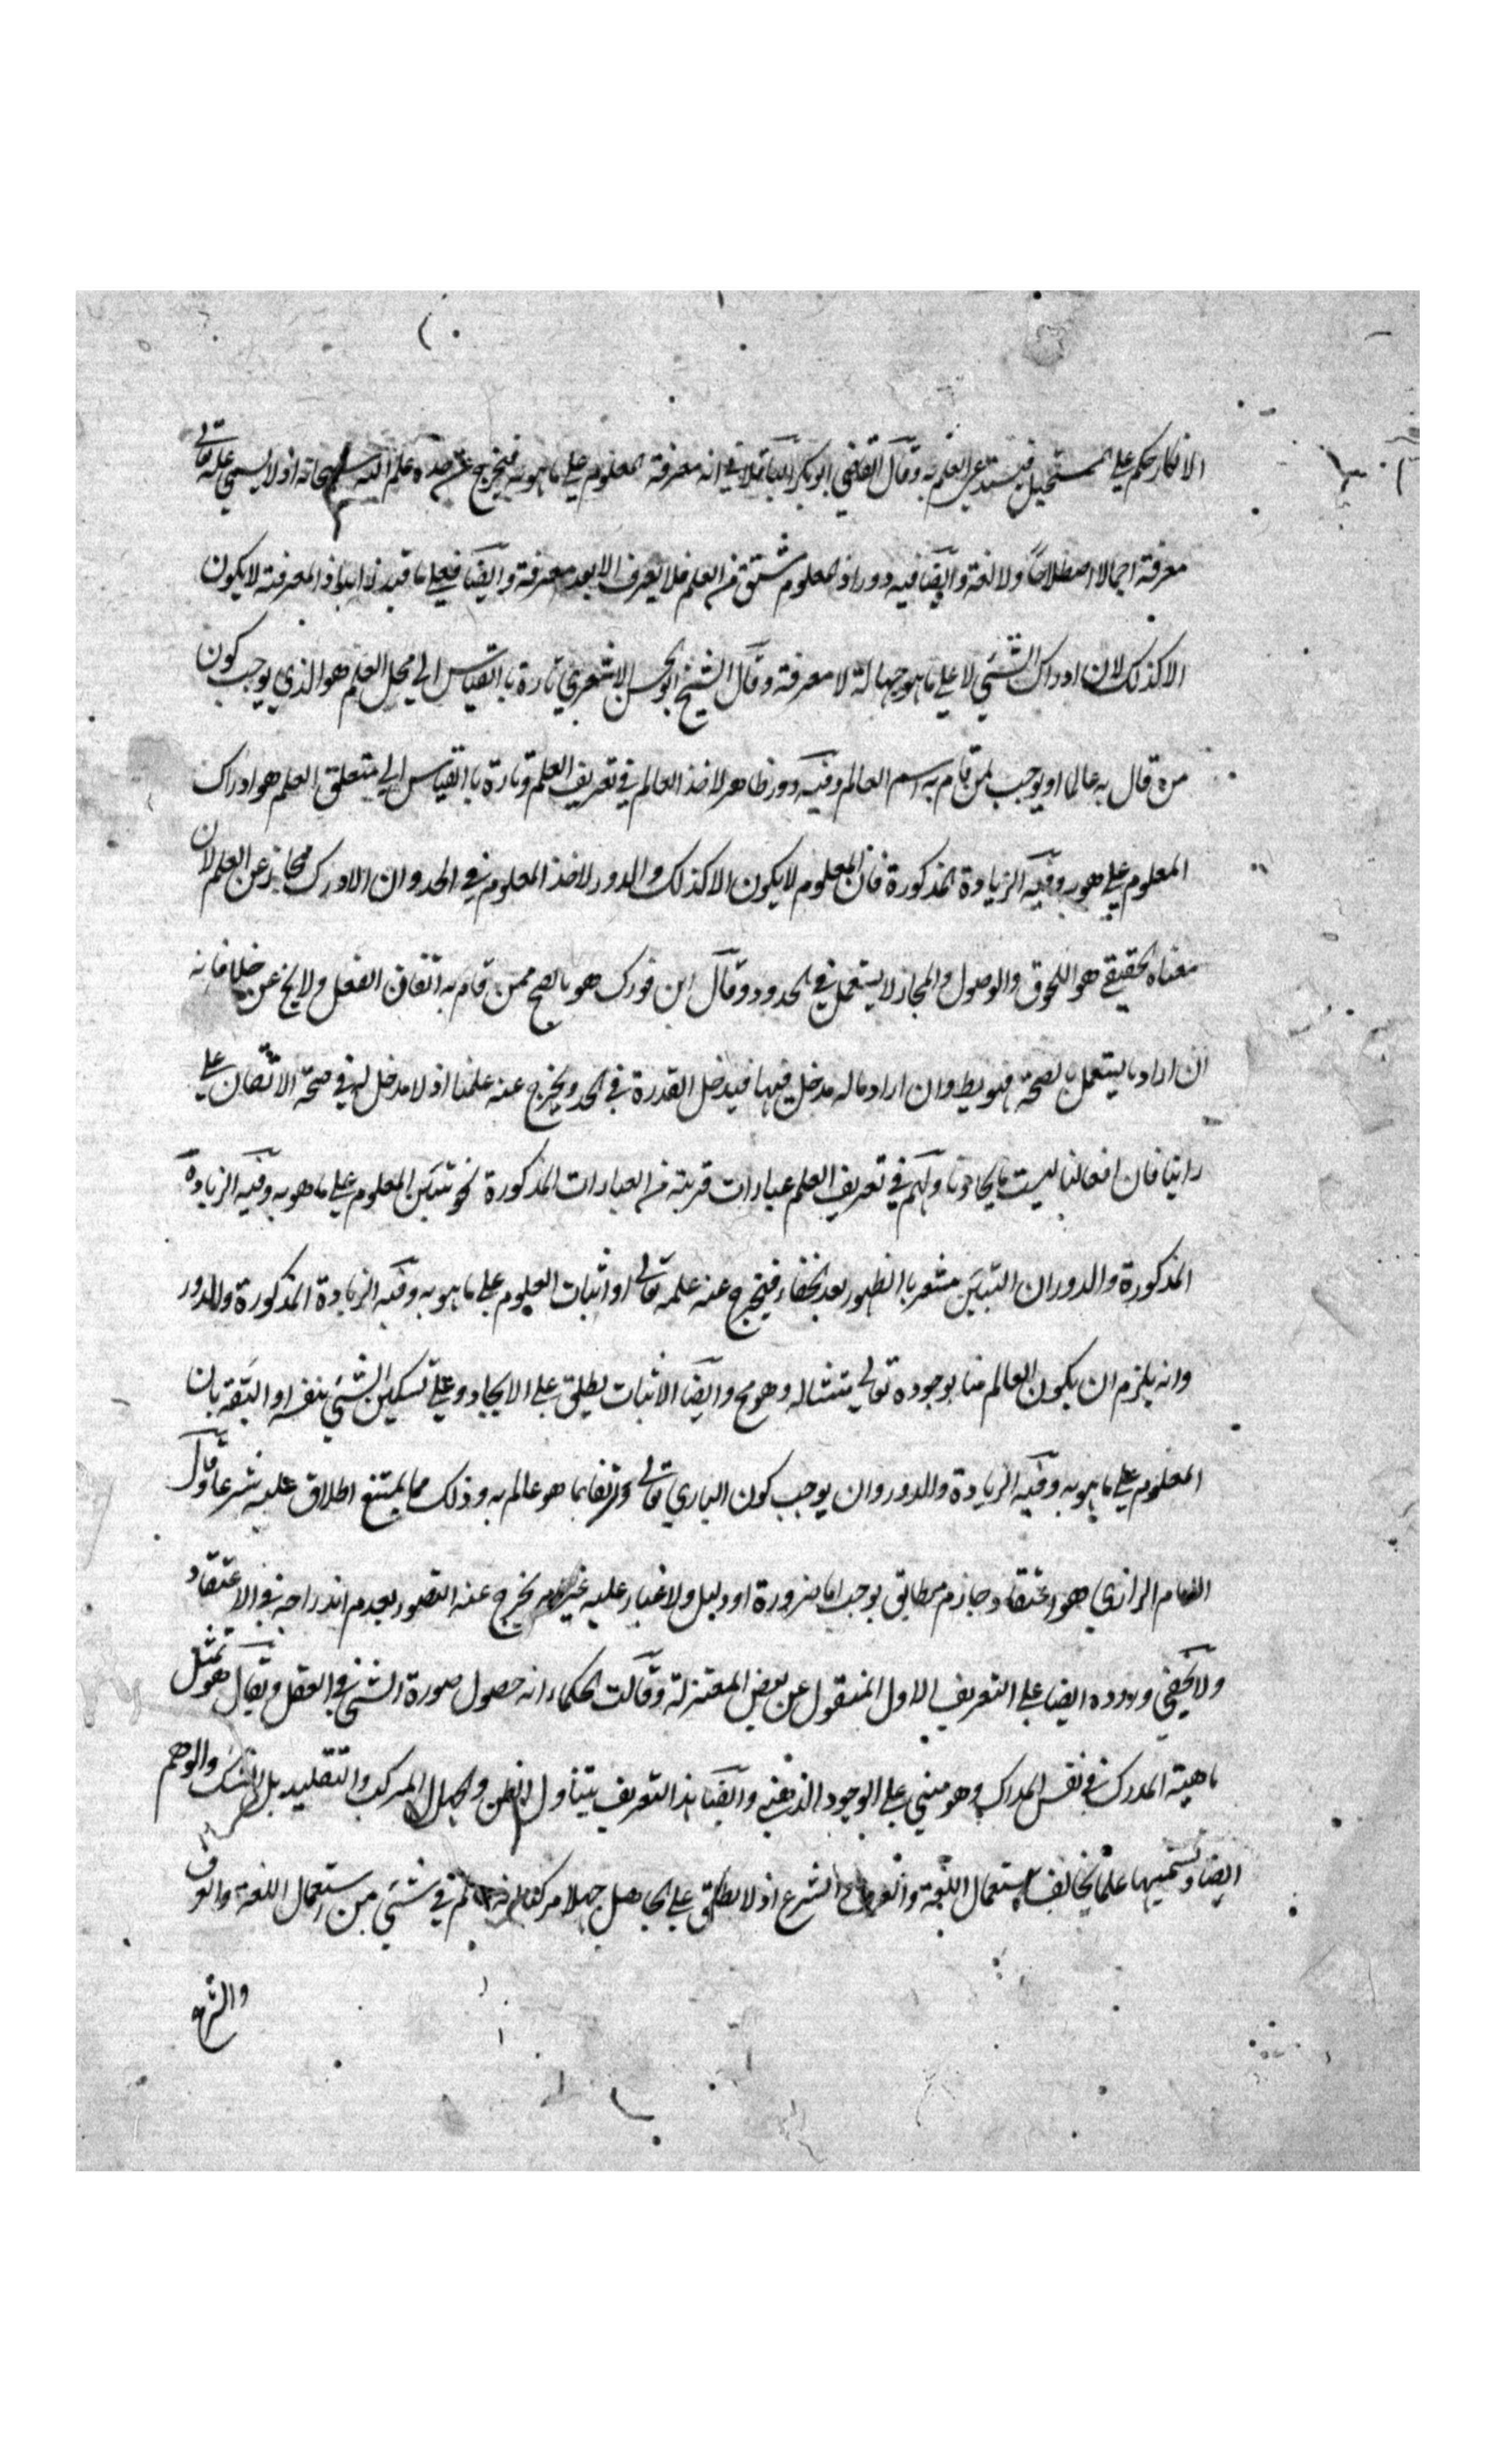 الانكار حكم على المستحيل فيستدعى العلم به وقال القاضي ابو بكر الباقلاني انه معرفة المعلوم على ما هو به فيخرج عن حده علم الله سبحانه اذ لا يسمي علمه تعالى
معرفة اجمالا اصطلاحاً ولا لغة وايضا فيه دور اذ المعلوم مشتق من العلم فلا يعرف الا بعد معرفة وايضا فعلى ما قيد زائد اذ المعرفة لا يكون
الا كذلك لان ادراك الشئي لا على ما هو جهالة لا معرفة وقال الشيخ ابو الحسن الاشعري تارة با القياس الي محل العلم هو الذي يوجب كون
من قال به عالما او يوجب لمن قام به اسم العالم وفيه دور ظاهر لاخذ العالم في تعريف العلم وتارة با القياس الي متعلق العلم هو ادراك
المعلوم على هو به وفيه الزيادة المذكورة فان المعلوم لا يكون الا كذلك والدور لاخذ المعلوم في الحد وان الادرك مجاز عن العلم لان
معناه الحقيقي هو اللحوق والوصول والمجاز لا يستعمل في الحدود وقال ابن فورك هو ما يصح ممن قام به اتقان الفعل ولا يخ عن خلل فانه
ان اراد ما يستعمل بالصحة فهو بط وان اراد ما له مدخل فيها فيدخل القدرة في الحد ويخرج عنه علمنا اذ لا مدخل له في صحة الاتقان على
راينا فان افعالنا ليست بايجادنا ولهم في تعريف العلم عبارات قريبة من العبارات المذكورة نحو تبين المعلوم على ما هو به وفيه الزيادة
المذكورة والدور ان التبين مشعر با الظهور بعد الخفاء فيخرج عنه علمه تعالى او اثبات المعلوم على ما هو به وفيه الزيادة المذكورة والدور
وانه يلزم ان يكون العالم منا بوجوده تعالى مثبتا له وهو مح وايضا الاثبات يطلق على الايجاد وعلى تسكين الشئي بنفسه او الثقة بان
المعلوم على ما هو به وفيه الزيادة والدور وان يوجب كون الباري تعالى واثقا بما هو عالم به وذلك مما يمتنع اطلاق عليه شرعا وقال
الامام الرازي هو اعتقاد جازم مطابق يوجب اما ضرورة او دليل ولا غبار عليه غير انه يخرج عنه التصور لعدم اندراجه في الاعتقاد
ولا يخفي وروده ايضا على التعريف الاول المنقول عن بعض المعتزلة وقالت الحكماء انه حصول صورة الشئ في العقل ويقال هو تمثل
ماهية المدرك في نفس المدرك وهو مبني على الوجود الذهني وايضا هذا التعريف يتناول الظن والجهل المركب والتقليد بل الشك والوهم
ايضا وتسميتها علما يخالف استعمال اللغة والعرف والشرع اذ لا يطلق على الجاهل جهلا مركبا انه عالم في شئي من استعمال اللغة والعرف
والشرع